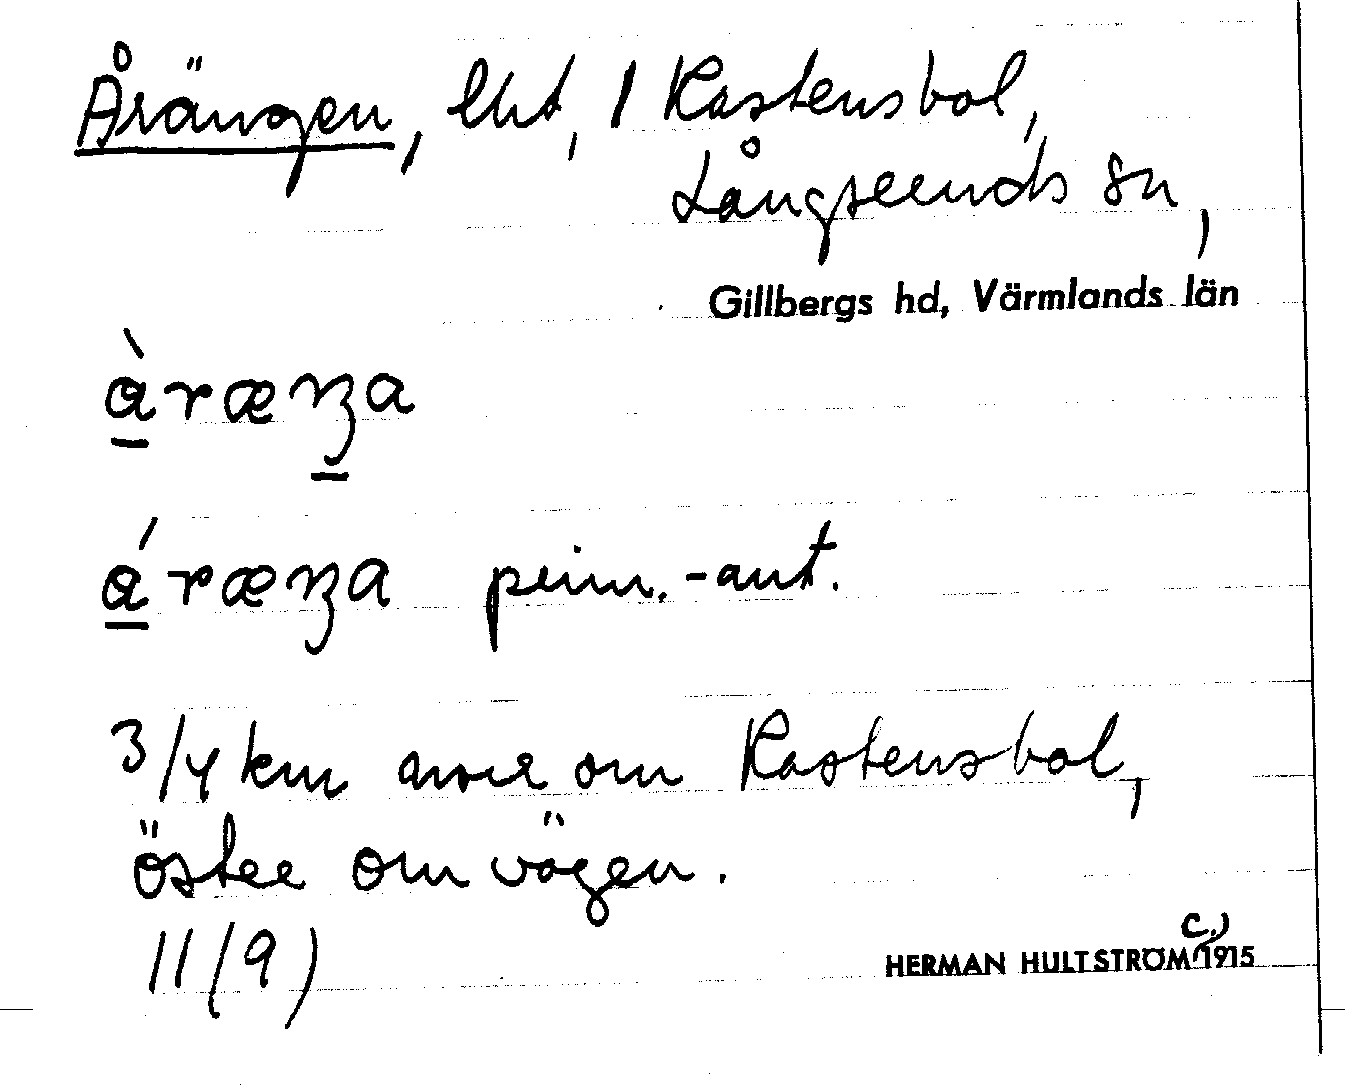 Årängen, lht, 1 Rastensbol,
Långseruds sn,
Gillbergs hd, Värmlands län
àræŋa
áræŋa prim.-ant.
3/4 km norr om Rastensbol,
öster om vägen.
11(9)
HERMAN HULTSTRÖM c.) 1915